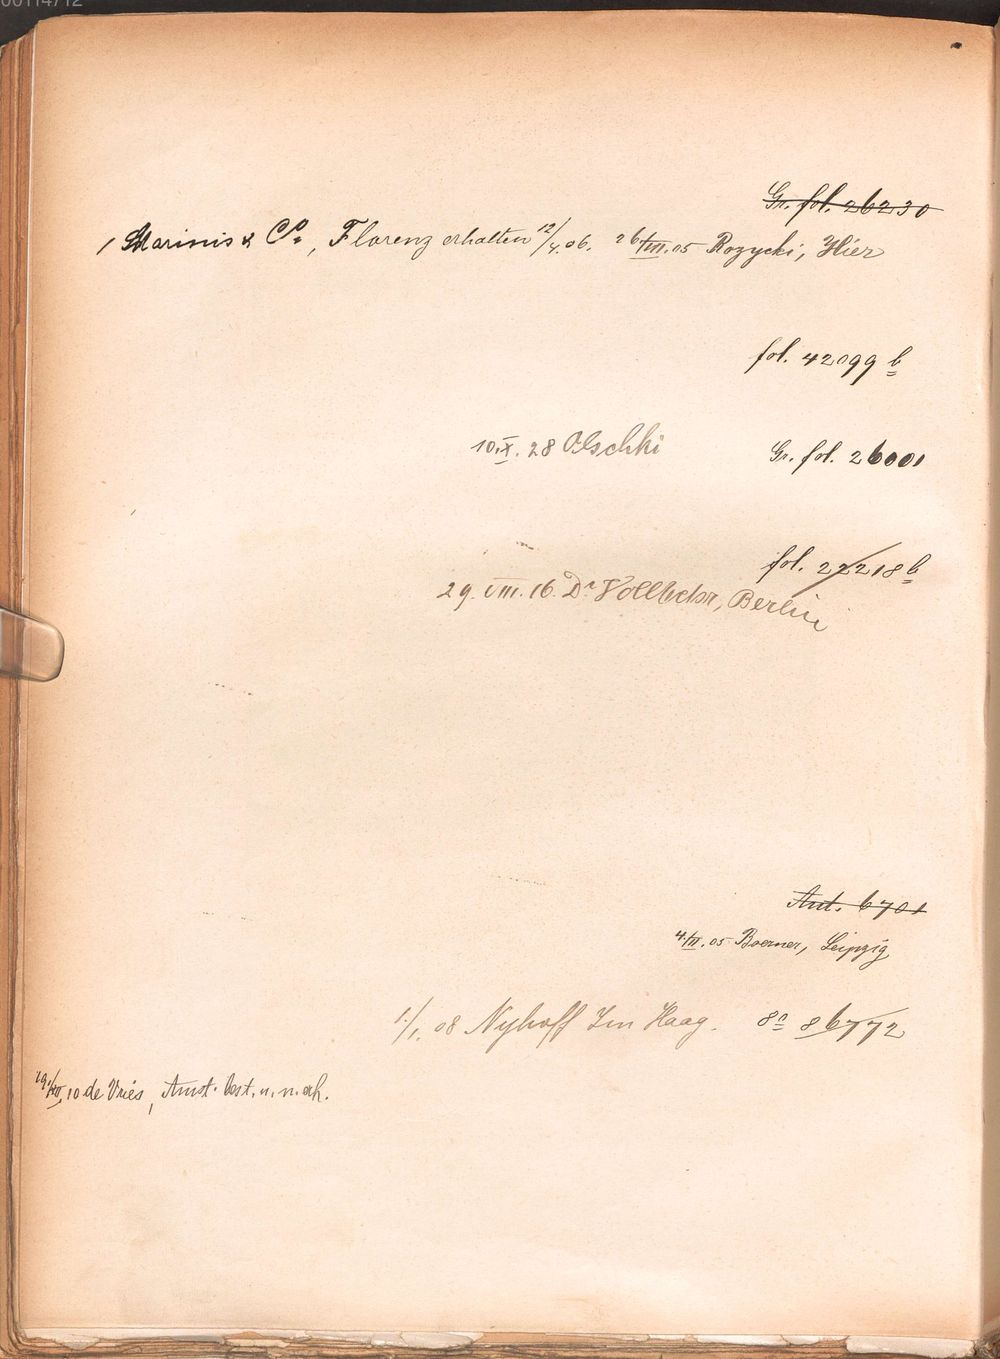 00114712
Gr. fol. 26230
Marinis & Co, Florenz erhalten 12/4.06. 26/VIII.05 Rozycki, Hier
fol. 42099 b
10.X.28 Olschki Gr. fol. 26001
fol. 22218 b
29.VIII.16. Dr Vollbehr, Berlin
Ant. 6701
Boerner, Leipzig
1./1. 08 Nyhoff Im Haag. 8° 86772
10 de Vries, Amst. best. u. n. erh.